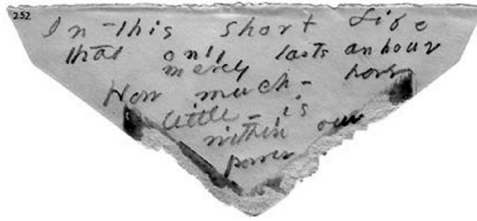 252
In - this short Life
that only lasts an hour
merely
How much - how
little - is
within our
power